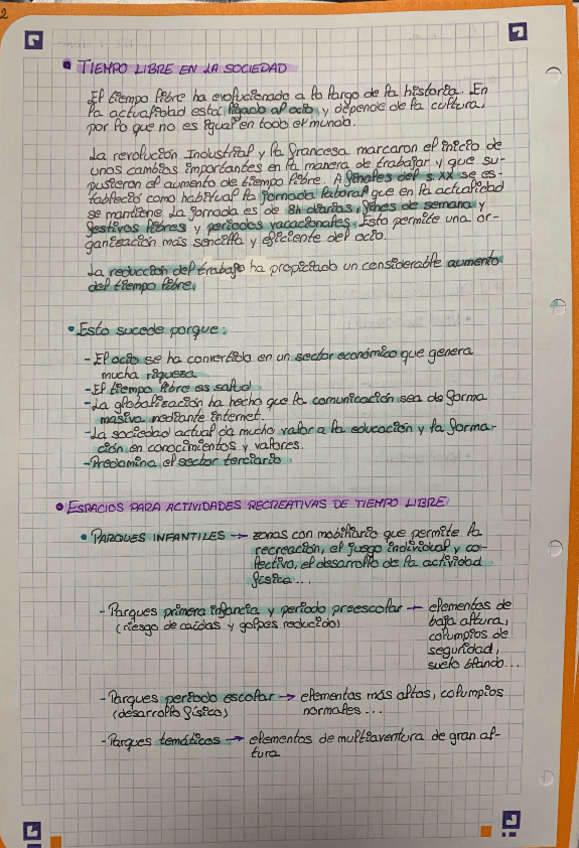 2
• TIEMPO LIBRE EN LA SOCIEDAD
El tiempo libre ha evolucionado a lo largo de la historia. En
la actualidad está ligado al ocio, y depende de la cultura,
por lo que no es igual en todo el mundo.
La revolución Industrial y la francesa marcaron el inicio de
unos cambios importantes en la manera de trabajar y que su-
pusieron al aumento de tiempo libre. A finales del s.XX se es-
tableció como habitual la jornada laboral que en la actualidad
se mantiene. La jornada es de 8h diarias, fines de semana y
festivos libres y periodos vacacionales. Esto permite una or-
ganización más sencilla y eficiente del ocio.
La reducción del trabajo ha propiciado un considerable aumento
del tiempo libre.
• Esto sucede porque:
- El ocio se ha convertido en un sector económico que genera
mucha riqueza
- El tiempo libre es salud
- La globalización ha hecho que la comunicación sea de forma
masiva mediante internet.
- La sociedad actual da mucho valor a la educación y la forma-
ción en conocimientos y valores.
- Predomina el sector terciario
• ESPACIOS PARA ACTIVIDADES RECREATIVAS DE TIEMPO LIBRE:
• PARQUES INFANTILES → zonas con mobiliario que permite la
recreación, el juego individual y co-
lectivo, el desarrollo de la actividad
física...
- Parques primera infancia y periodo preescolar → elementos de
(riesgo de caídas y golpes reducido) baja altura,
columpios de
seguridad,
suelo blando...
- Parques periodo escolar → elementos más altos, columpios
(desarrollo físico) normales...
- Parques temáticos → elementos de multiaventura de gran al-
tura